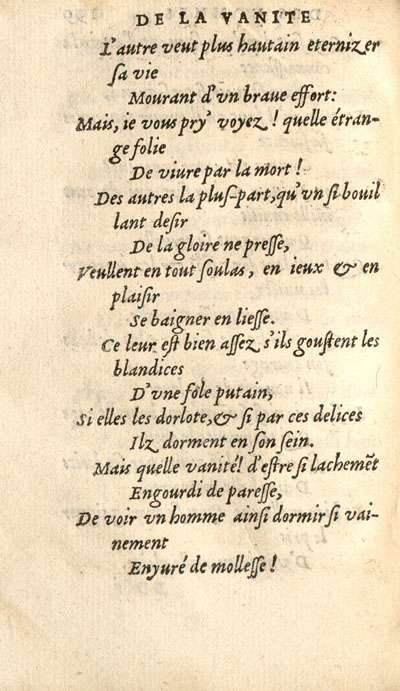 DE LA VANITE
L'autre veut plus hautain eternizer
sa vie
Mourant d'vn braue effort:
Mais, ie vous pry' voyez! quelle étran-
ge folie
De viure par la mort!
Des autres la plus-part, qu'vn si bouil
lant desir
De la gloire ne presse,
Veullent en tout soulas, en ieux & en
plaisir
Se baigner en liesse.
Ce leur est bien assez s'ils goustent les
blandices
D'vne fole putain,
Si elles les dorlote, & si par ces delices
Ilz dorment en son sein.
Mais quelle vanité! d'estre si lachemẽt
Engourdi de paresse,
De voir vn homme ainsi dormir si vai-
nement
Enyuré de mollesse!